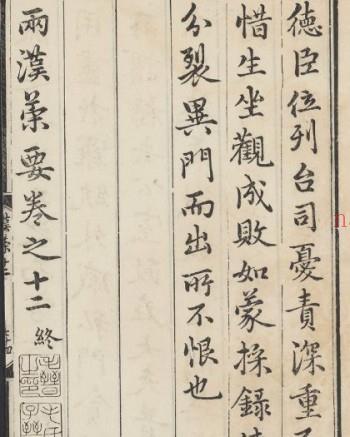 德臣位列台司憂責深重
惜生坐觀成敗如蒙採録
分裂異門而出所不恨也
兩漢策要卷之十二 終